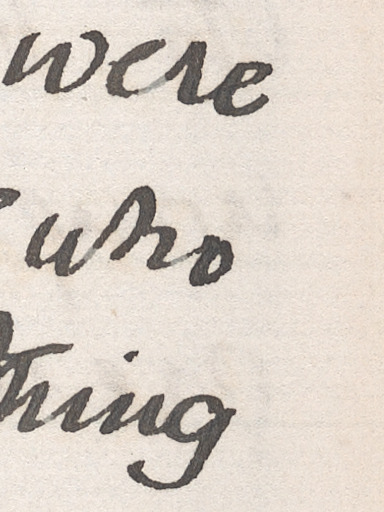 were
who
thing